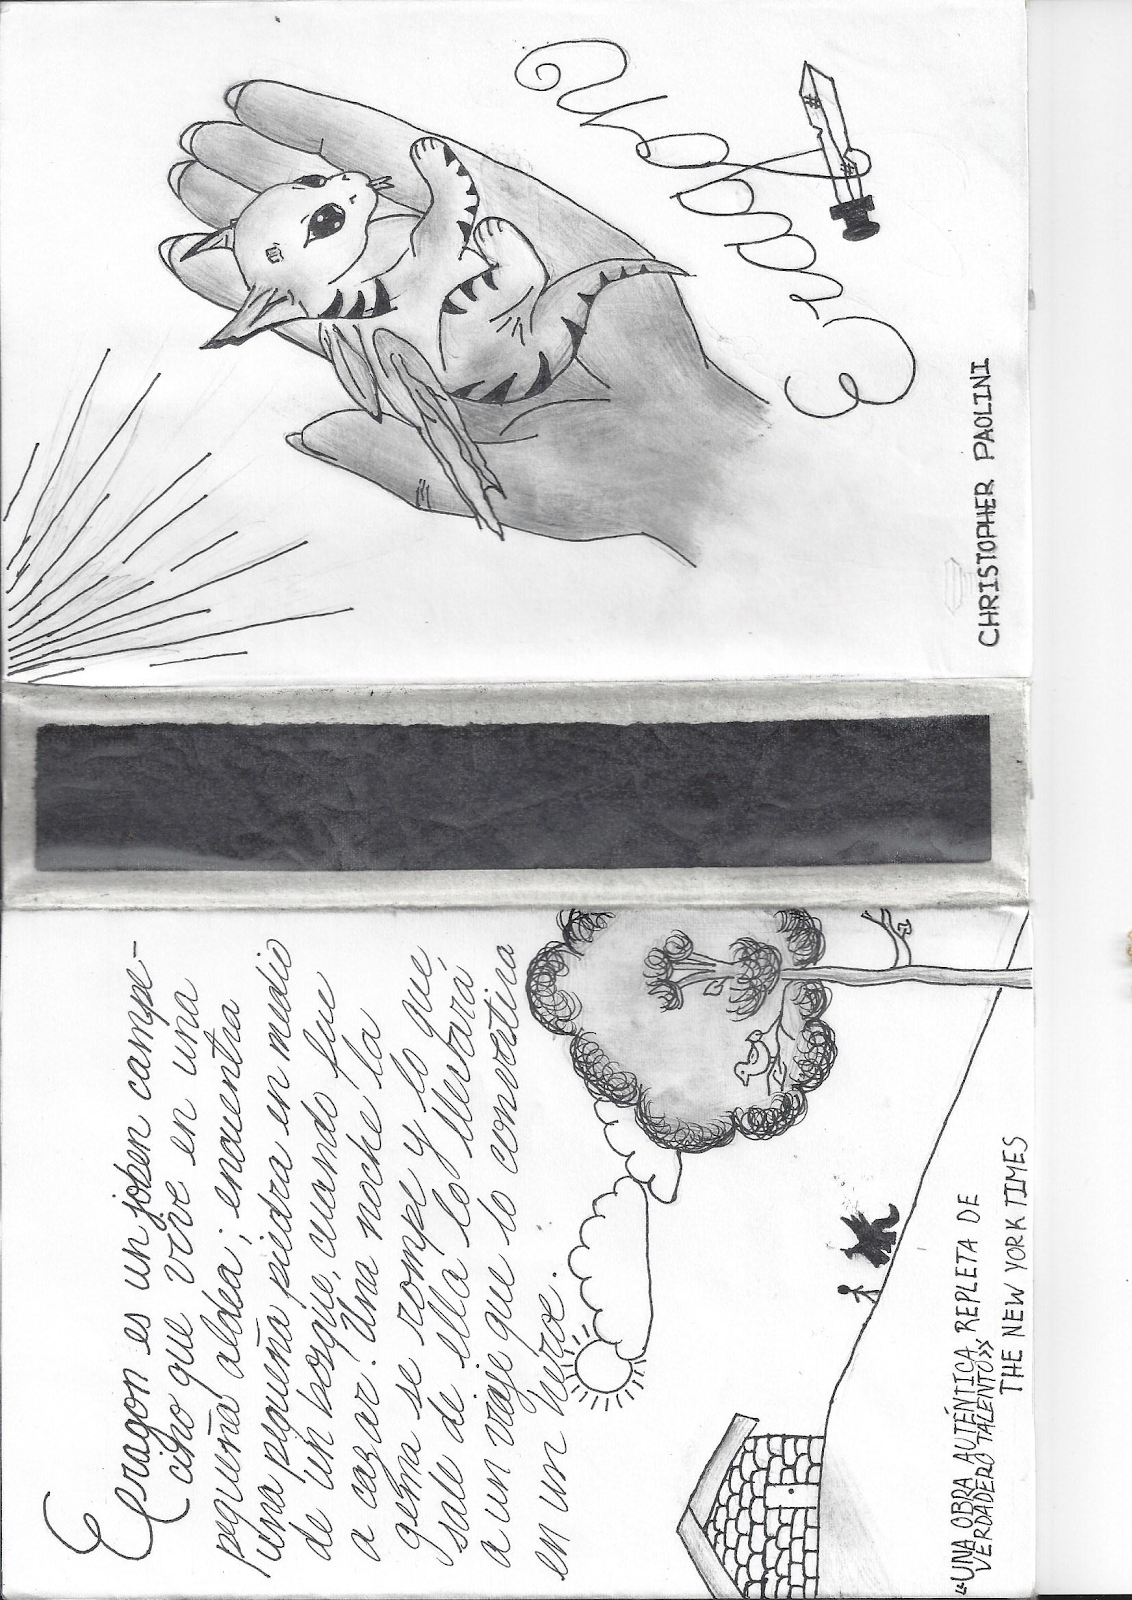 Eragon es un joben campe-
cino que vive en una
pequeña aldea; encuentra
una pequeña piedra en medio
de un bosque, cuando fue
a cazar. Una noche la
gema se rompe y lo que
sale de ella lo llebará
a un viaje que lo convertira
en un heroe.
«UNA OBRA AUTÉNTICA, REPLETA DE
VERDADERO TALENTO»
THE NEW YORK TIMES
Eragon
CHRISTOPHER PAOLINI